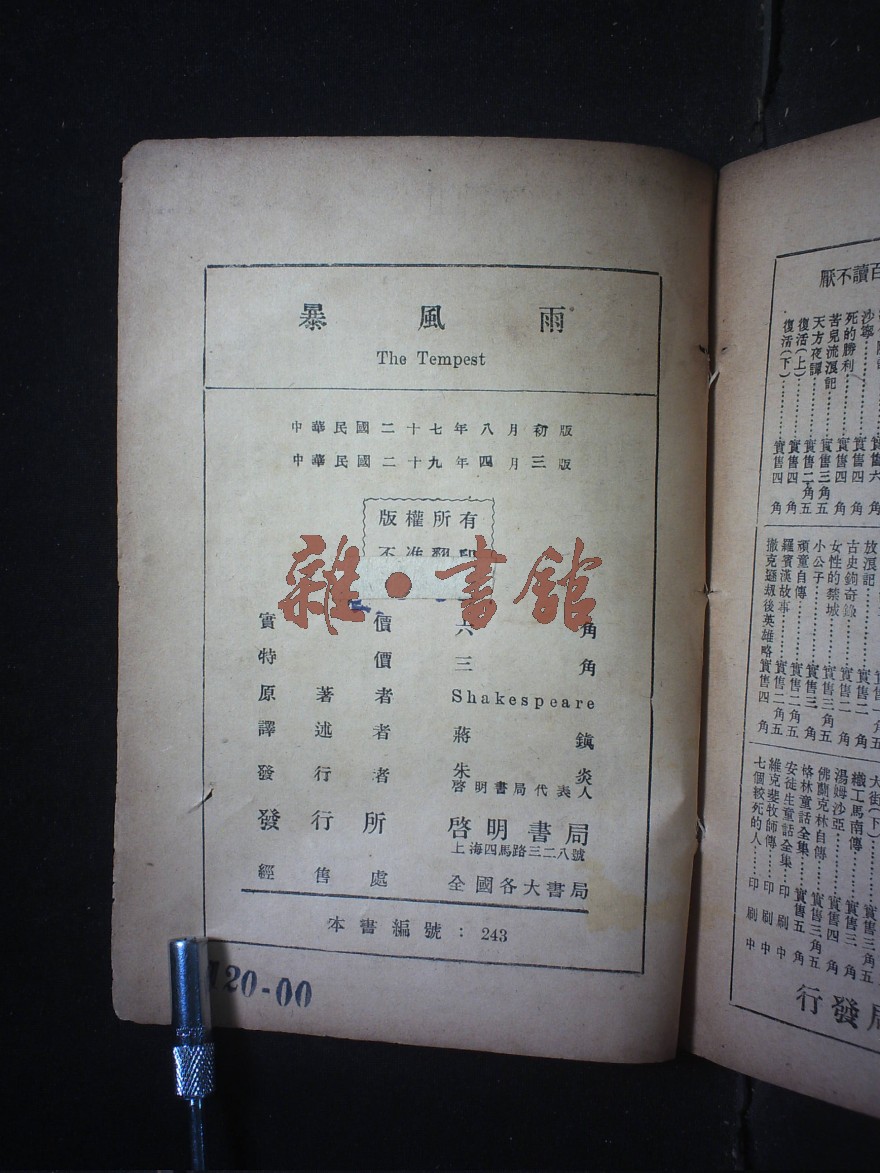 暴風雨
The Tempest
中華民國二十七年八月初版
中華民國二十九年四月三版
版權所有
不准翻印
雜·書館
實價 六角
特價 三角
原著者 Shakespeare
譯述者 蔣鎮
發行者 朱炎
啓明書局代表人
發行所 啓明書局
上海四馬路三二八號
經售處 全國各大書局
本書編號：243
20-00
百讀不厭
沙寧
死的勝利 實售四角
苦兒流浪記 實售三角五
天方夜譚 實售二角五
復活(上) 實售四角
復活(下) 實售四角
放浪記
古史鉤奇錄 實售二角
女性的禁城 實售二角
小公子 實售三角五
頑童自傳 實售三角
羅賓漢故事 實售二角五
撒克遜劫後英雄略 實售四角
大街(下) 實售三角五
織工馬南傳 實售三角
湯姆沙亞 實售四角
佛蘭克林自傳 實售三角五
格林童話全集 實售五角
安徒生童話全集 印刷中
維克斐牧師傳 印刷中
七個絞死的人 印刷中
行發局